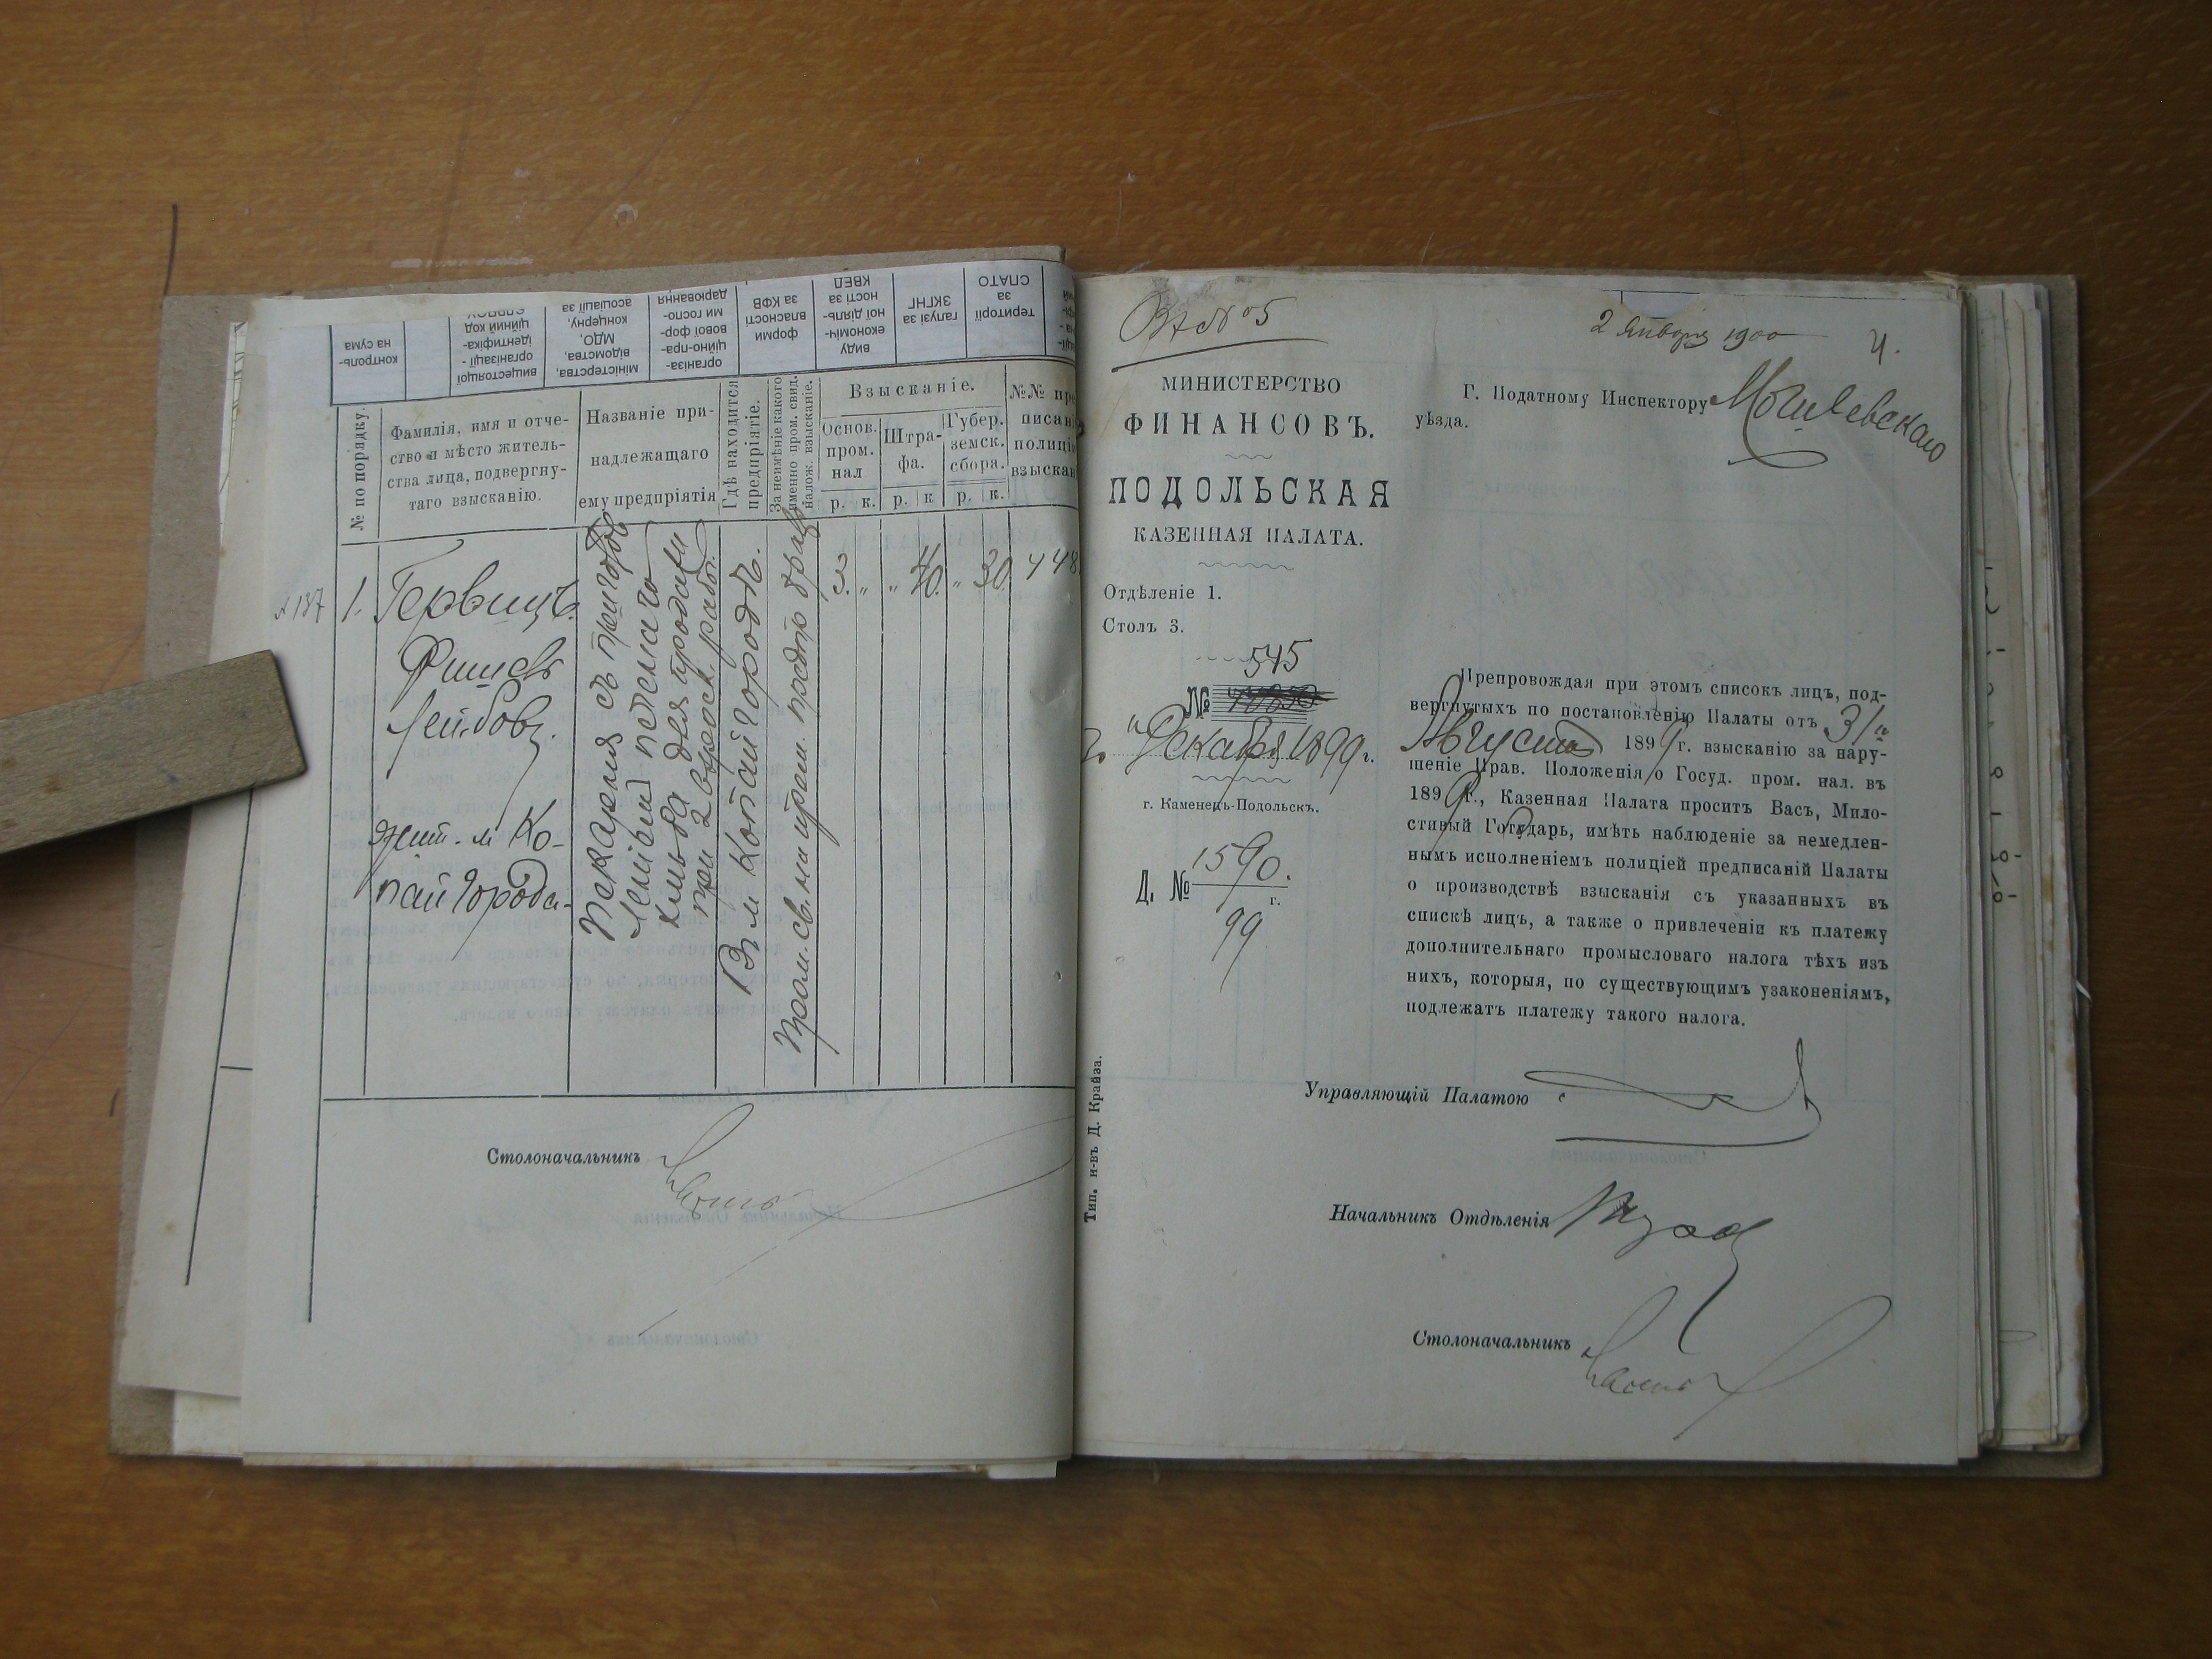 контроль-
на сума
вищестоящої
організації -
ідентифіка-
ційний код
міністерства,
відомства,
МДО,
концерну,
асоціації за
організа-
ційно-пра-
вової фор-
ми госпо-
дарювання
форми
власності
за КФВ
виду
економіч-
ної діяль-
ності за
КВЕД
галузі за
ЗКГНГ
території
за
СПАТО
№ по порядку.
Фамилія, имя и отче-
ство и мѣсто житель-
ства лица, подвергну-
таго взысканію.
Названіе при-
надлежащаго
ему предпріятія
Гдѣ находится
предпріятіе.
За неимѣніе какого
именно пром. свид.
налож. взысканіе.
Взысканіе.
Основ.
пром.
нал
Штра-
фа.
Губер.
земск.
сбора.
р. к. р. к р. к.
№№ пре
писан
полиціи
взыскан
137
1.
Гервицъ
Фишель
Лейбов.
жит. м Ко-
пайгорода-
Пекарня съ приготов
леніемъ
хлѣба для продажи
при 2 взросл. рабоч.
В м Копайгородѣ.
Пром. св. на пром. предпр
3. " " 40. " 30. 448
Столоначальникъ
Вх №5
2 Января 1900
4.
МИНИСТЕРСТВО
ФИНАНСОВЪ.
ПОДОЛЬСКАЯ
КАЗЕННАЯ ПАЛАТА.
Отдѣленіе 1.
Столъ 3.
545
№
Декабря 1899 г.
г. Каменецъ-Подольскъ.
Д. № 1590.
г.
99
Г. Податному Инспектору Могилевскаго
уѣзда.
Препровождая при этомъ списокъ лицъ, под-
вергнутыхъ по постановленію Палаты отъ 31
Августа 1899 г. взысканію за нару-
шеніе Прав. Положенія о Госуд. пром. нал. въ
1899 г., Казенная Палата проситъ Васъ, Мило-
стивый Государь, имѣть наблюденіе за немедлен-
нымъ исполненіемъ полиціей предписаній Палаты
о производствѣ взысканія съ указанныхъ въ
спискѣ лицъ, а также о привлеченіи къ платежу
дополнительнаго промысловаго налога тѣхъ изъ
нихъ, которыя, по существующимъ узаконеніямъ,
подлежатъ платежу такого налога.
Управляющій Палатою
Начальникъ Отдѣленія
Столоначальникъ
Тип. н-въ Д. Крайза.